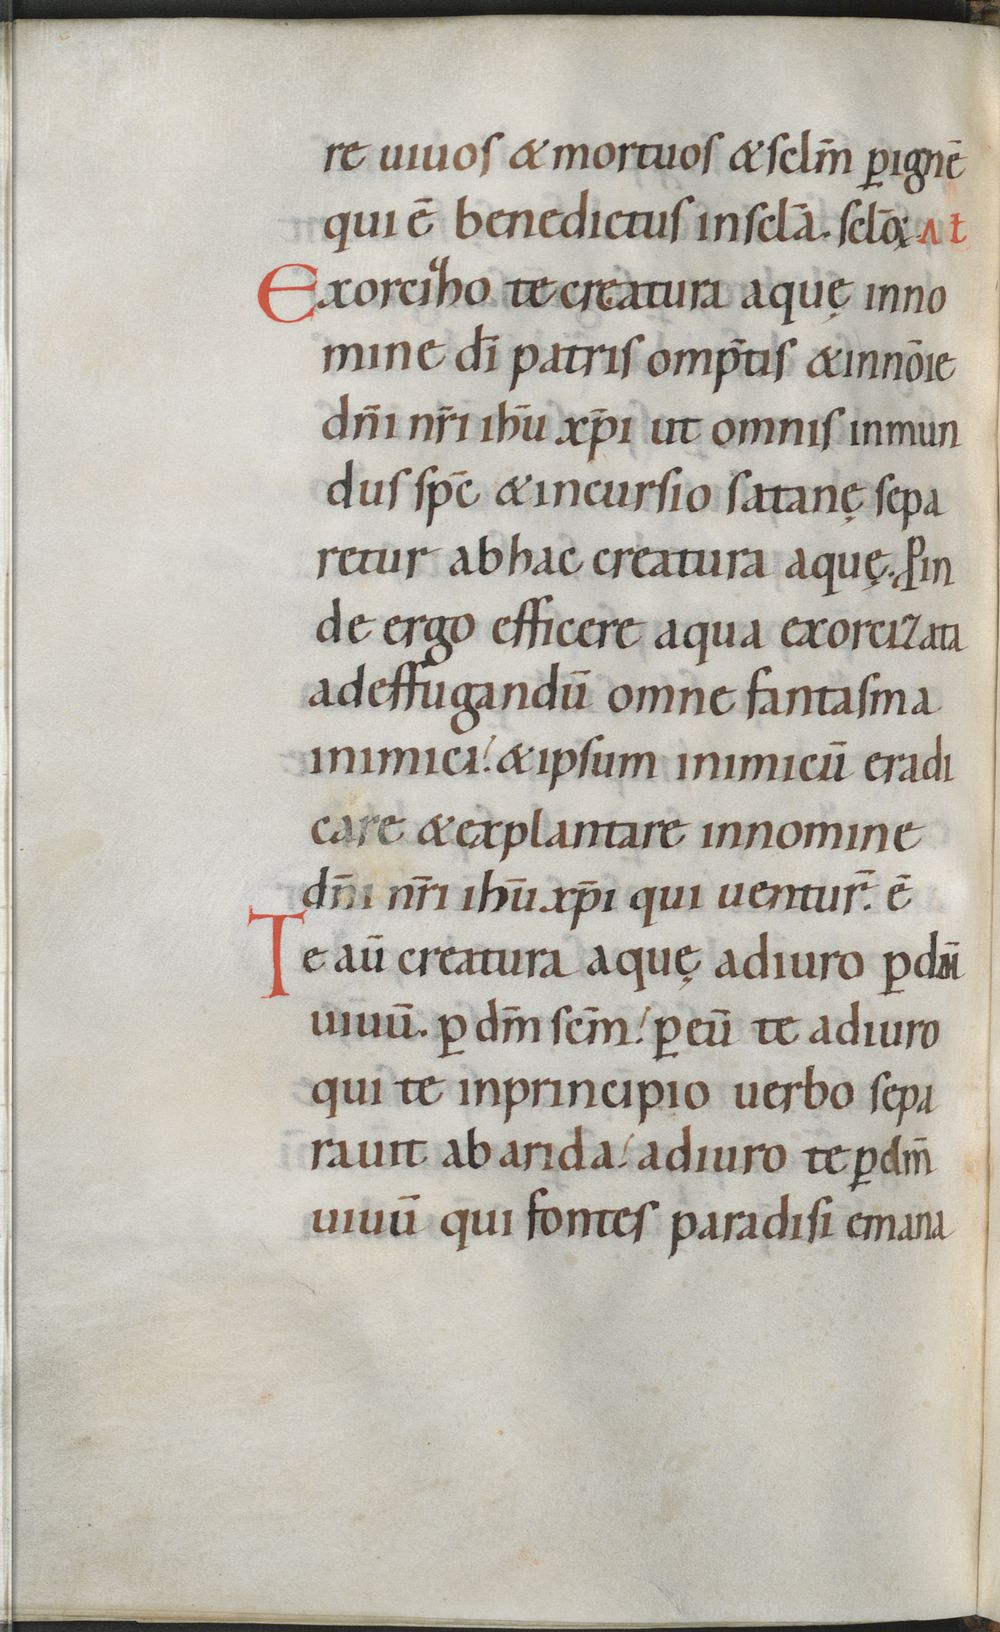 re uiuos & mortuos & sclm̄ p̲ ignē
qui ē benedictus in sclā. scloꝝ. Λ ꞇ̄
Exorcizo te creatura aquę in no
mine dī patris omp̄tis & in nōie
dn̄i nr̄i ihū xp̄i ut omnis inmun
dus sp̄c & incursio satanę sepa
retur ab hac creatura aquę. Ꝓin
de ergo efficere aqua exorcizata
ad effugandū omne fantasma
inimici. & ipsum inimicū eradi
care & explantare in nomine
dn̄i nr̄i ihū xp̄i qui uentur̄. ē
Te aū creatura aquę adiuro ꝑ dm̄
uiuū. ꝑ dm̄ scm̄. ꝑ eū te adiuro
qui te in principio uerbo sepa
rauit ab arida. adiuro te ꝑ dm̄
uiuū qui fontes paradisi emana